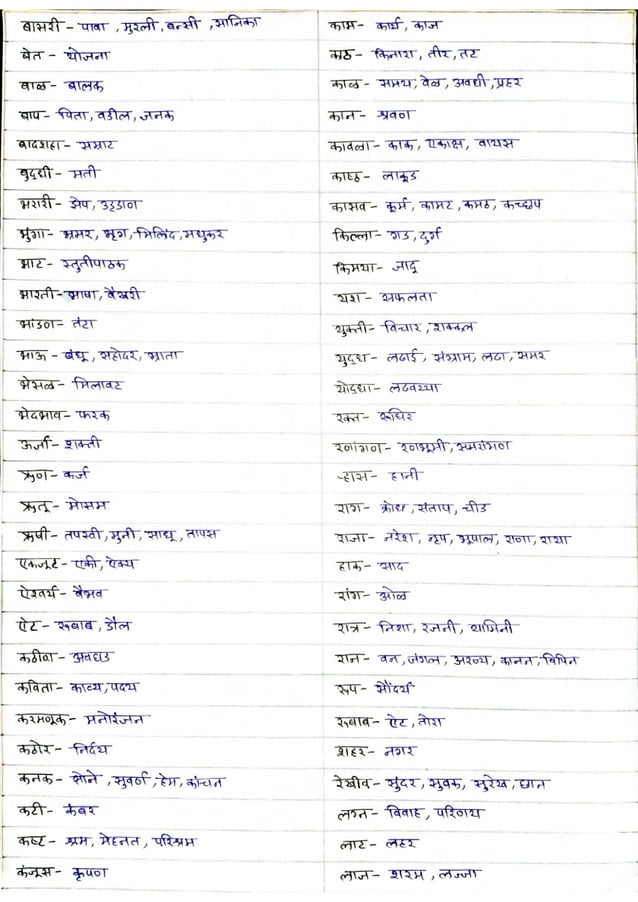 बासरी - पावा, मुरली, बन्सी, सानिका
बेत - योजना
बाळ - बालक
बाप - पिता, वडील, जनक
बादशहा - सम्राट
बुद्धी - मती
भरारी - झेप, उड्डाण
भुंगा - भ्रमर, भृंग, मिलिंद, मधुकर
भाट - स्तुतीपाठक
भारती - भाषा, वैखरी
भांडण - तंटा
भाऊ - बंधू, सहोदर, भ्राता
भेसळ - मिलावट
भेदभाव - फरक
ऊर्जा - शक्ती
ऋण - कर्ज
ऋतू - मोसम
ऋषी - तपस्वी, मुनी, साधू, तापस
एकजूट - एकी, ऐक्य
ऐश्वर्य - वैभव
ऐट - रुबाब, डौल
कठीण - अवघड
कविता - काव्य, पद्य
करमणूक - मनोरंजन
कठोर - निर्दय
कनक - सोने, सुवर्ण, हेम, कांचन
कटी - कंबर
कष्ट - श्रम, मेहनत, परिश्रम
कंजूस - कृपण
काम - कार्य, काज
काठ - किनारा, तीर, तट
काळ - समय, वेळ, अवधी, प्रहर
कान - श्रवण
कावळा - काक, एकाक्ष, वायस
काष्ठ - लाकूड
कासव - कूर्म, कामट, कमठ, कच्छप
किल्ला - गड, दुर्ग
किमया - जादू
यश - सफलता
युक्ती - विचार, शक्कल
युद्ध - लढाई, संग्राम, लढा, समर
योद्धा - लढवय्या
रक्त - रूधिर
रणांगण - रणभूमी, समरांगण
ऱ्हास - हानी
राग - क्रोध, संताप, चीड
राजा - नरेश, नृप, भूपाल, राणा, राया
हाक - साद
रांग - ओळ
रात्र - निशा, रजनी, यामिनी
रान - वन, जंगल, अरण्य, कानन, विपिन
रूप - सौंदर्य
रुबाब - ऐट, तोरा
शहर - नगर
रेखीव - सुंदर, सुबक, सुरेख, छान
लग्न - विवाह, परिणय
लाट - लहर
लाज - शरम, लज्जा